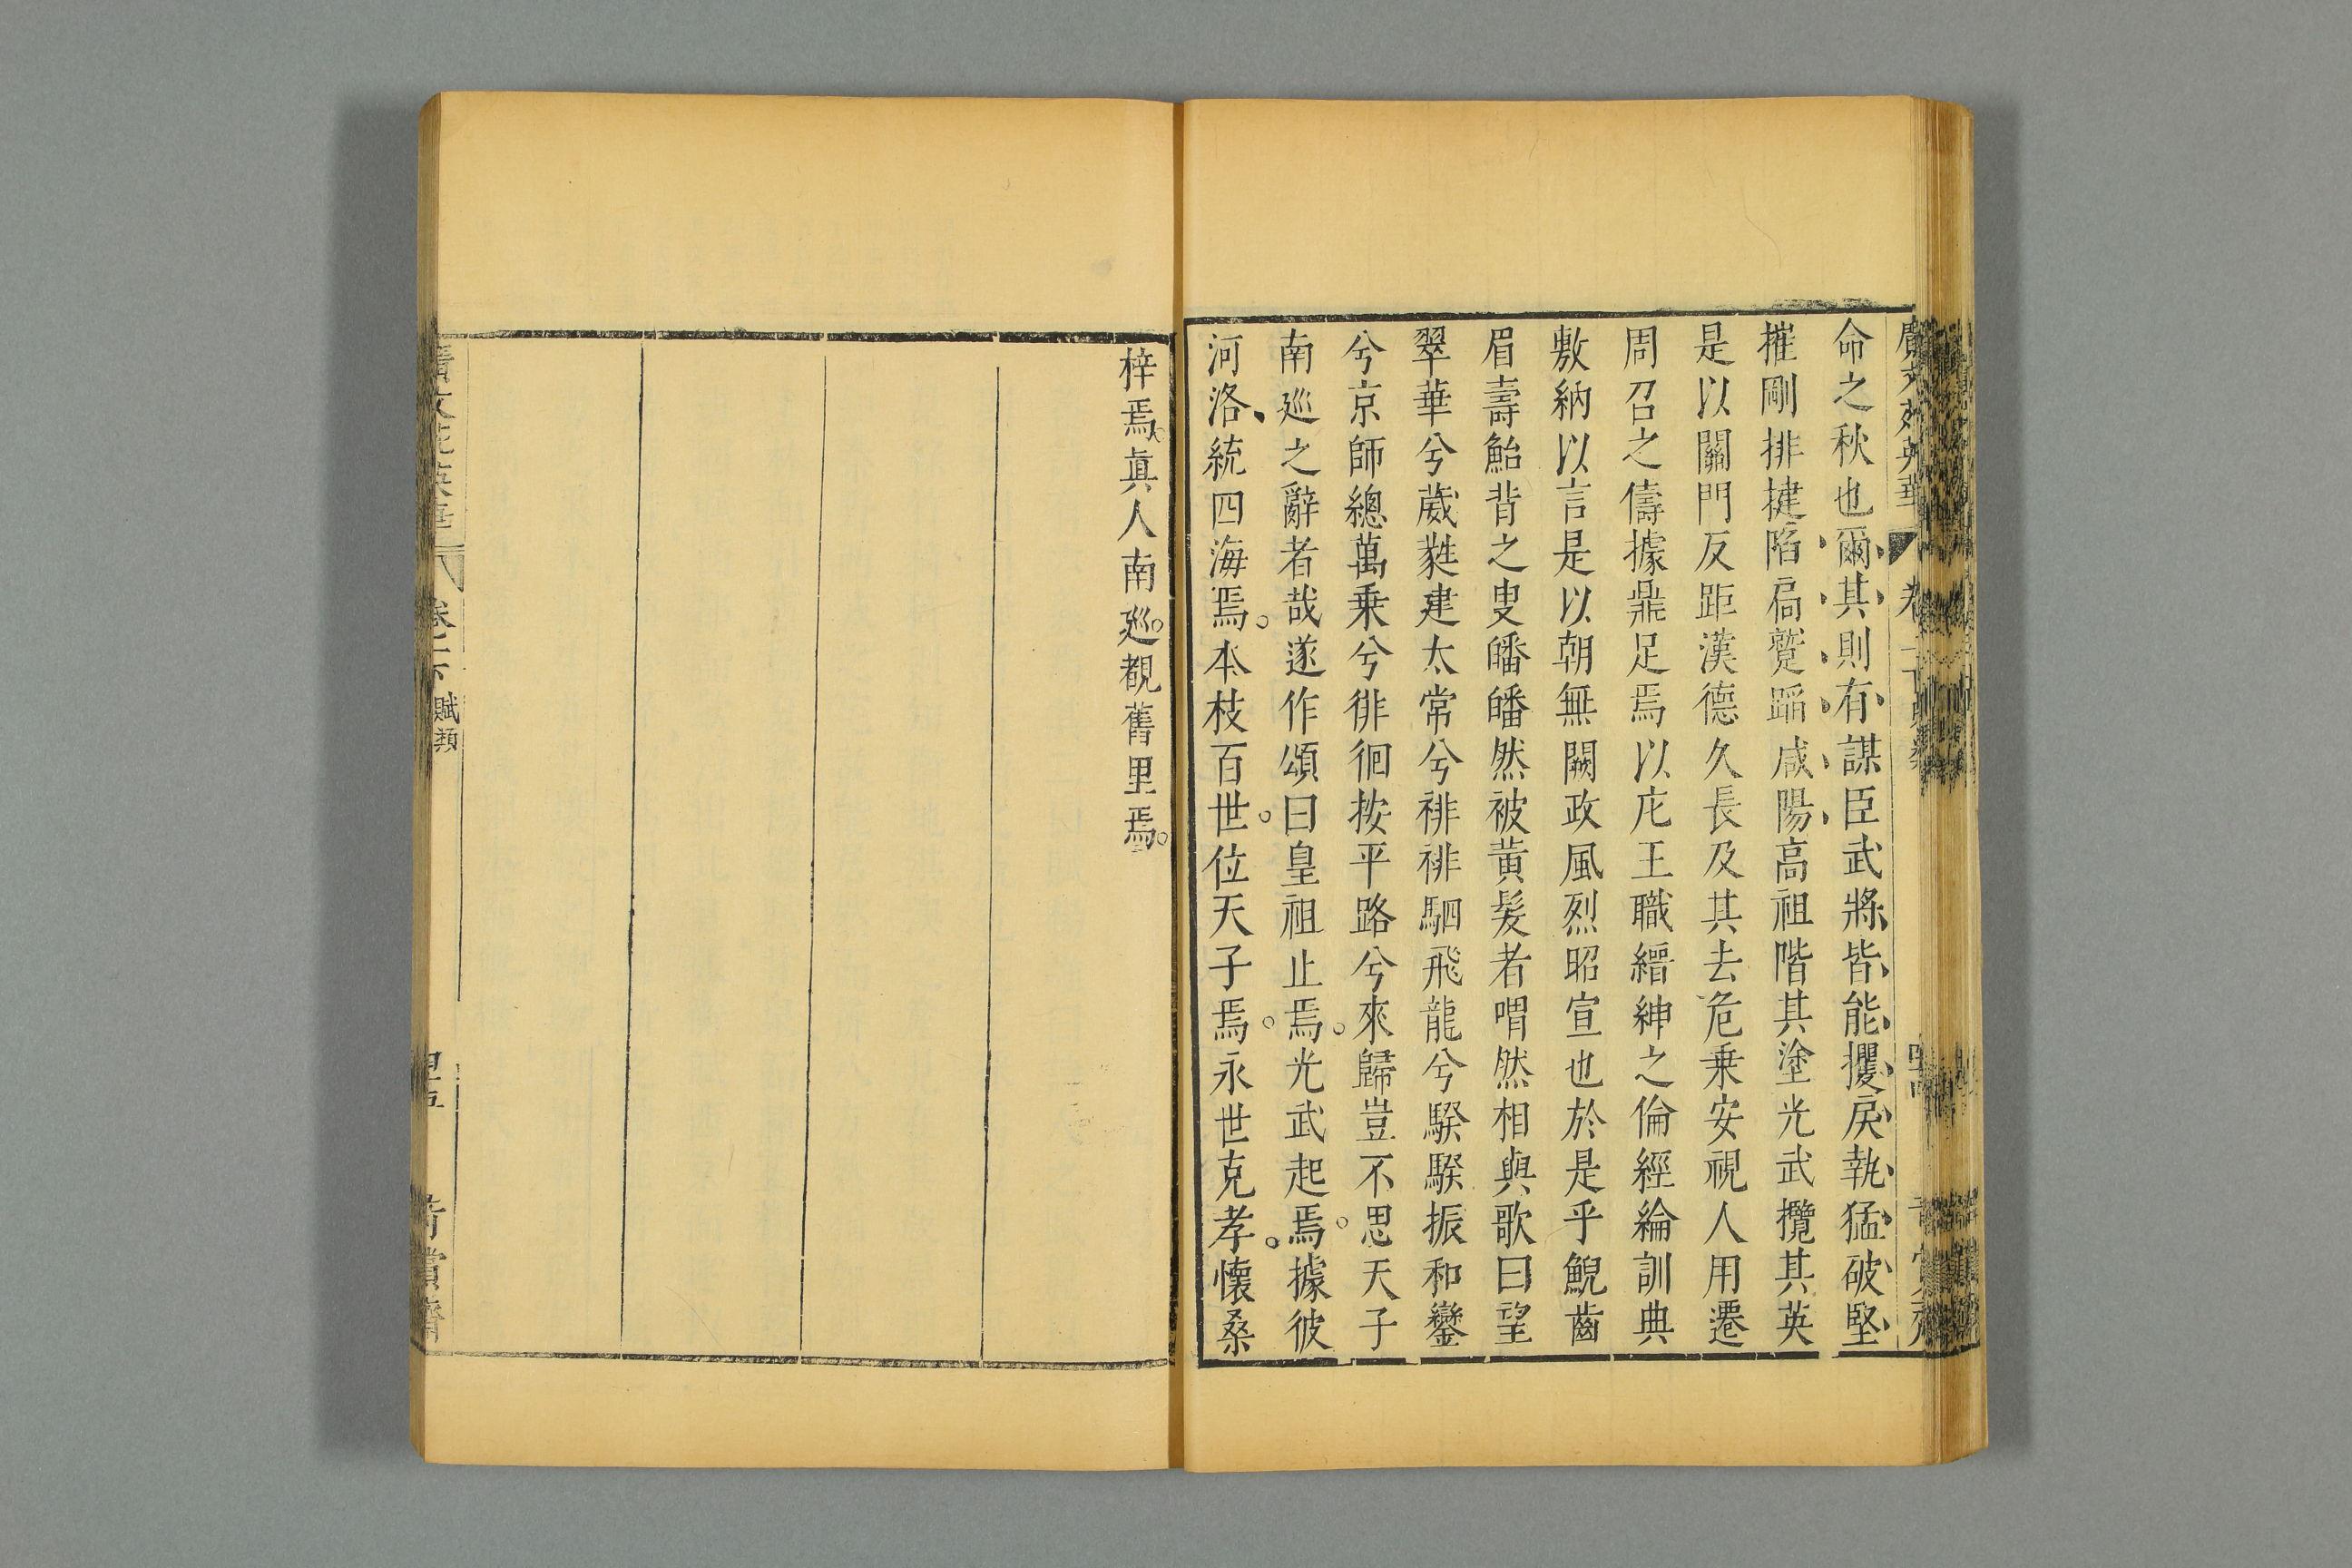 廣文苑英華 卷二下 賦類
命之秋也爾其則有謀臣武將皆能攫戾執猛破堅
摧剛排揵陷扃蹵蹈咸陽高祖階其塗光武攬其英
是以關門反距漢德久長及其去危乗安視人用遷
周召之儔據鼎足焉以庀王職縉紳之倫經綸訓典
敷納以言是以朝無闕政風烈昭宣也於是乎鯢齒
眉壽鮐背之叟皤皤然被黃髮者喟然相與歌曰望
翠華兮葳蕤建太常兮裶裶駟飛龍兮騤騤振和鑾
兮京師總萬乗兮徘徊按平路兮來歸豈不思天子
南廵之辭者哉遂作頌曰皇祖止焉光武起焉據彼
河洛統四海焉本枝百世位天子焉永世克孝懷桑
梓焉眞人南廵覩舊里焉
廣文苑英華 卷二下 賦類 四十五 肯賞齋